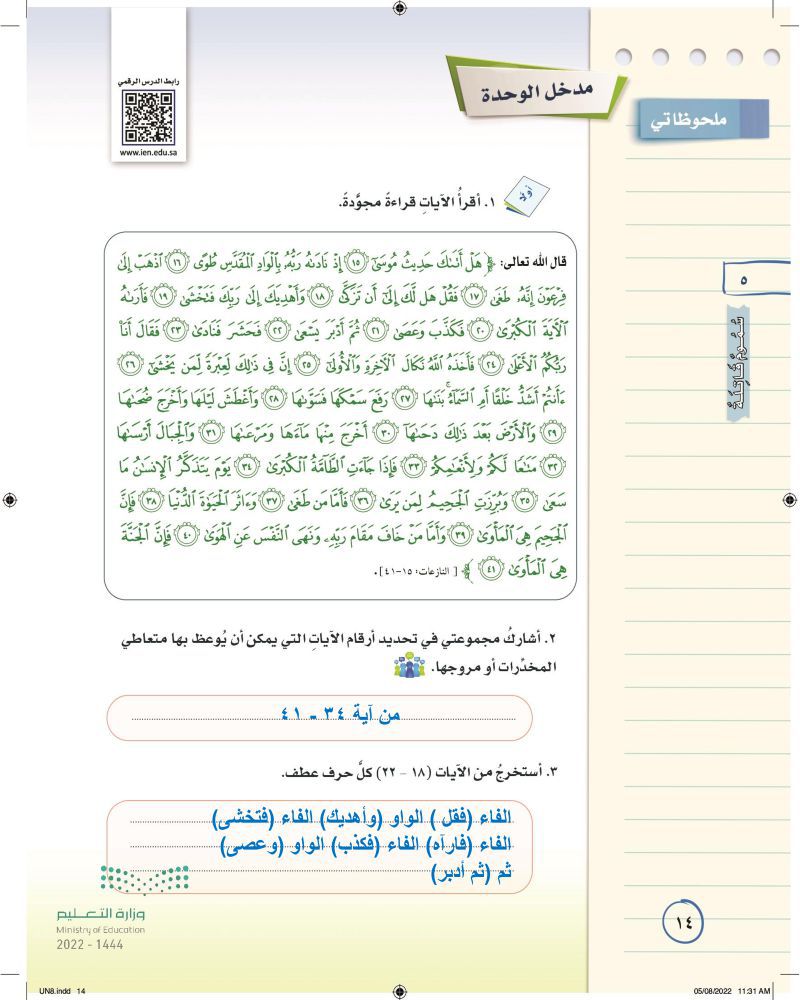 رابط الدرس الرقمي
www.ien.edu.sa
مدخل الوحدة
ملحوظاتي
أولًا
١. أقرأُ الآياتِ قراءةً مجوَّدةً.
قال الله تعالى: ﴿ هَلْ أَتَىٰكَ حَدِيثُ مُوسَىٰٓ ١٥ إِذْ نَادَىٰهُ رَبُّهُۥ بِٱلْوَادِ ٱلْمُقَدَّسِ طُوًى ١٦ ٱذْهَبْ إِلَىٰ
فِرْعَوْنَ إِنَّهُۥ طَغَىٰ ١٧ فَقُلْ هَل لَّكَ إِلَىٰٓ أَن تَزَكَّىٰ ١٨ وَأَهْدِيَكَ إِلَىٰ رَبِّكَ فَتَخْشَىٰ ١٩ فَأَرَىٰهُ
ٱلْءَايَةَ ٱلْكُبْرَىٰ ٢٠ فَكَذَّبَ وَعَصَىٰ ٢١ ثُمَّ أَدْبَرَ يَسْعَىٰ ٢٢ فَحَشَرَ فَنَادَىٰ ٢٣ فَقَالَ أَنَا۠
رَبُّكُمُ ٱلْأَعْلَىٰ ٢٤ فَأَخَذَهُ ٱللَّهُ نَكَالَ ٱلْءَاخِرَةِ وَٱلْأُولَىٰٓ ٢٥ إِنَّ فِى ذَٰلِكَ لَعِبْرَةً لِّمَن يَخْشَىٰٓ ٢٦
ءَأَنتُمْ أَشَدُّ خَلْقًا أَمِ ٱلسَّمَآءُ ۚ بَنَىٰهَا ٢٧ رَفَعَ سَمْكَهَا فَسَوَّىٰهَا ٢٨ وَأَغْطَشَ لَيْلَهَا وَأَخْرَجَ ضُحَىٰهَا
٢٩ وَٱلْأَرْضَ بَعْدَ ذَٰلِكَ دَحَىٰهَآ ٣٠ أَخْرَجَ مِنْهَا مَآءَهَا وَمَرْعَىٰهَا ٣١ وَٱلْجِبَالَ أَرْسَىٰهَا
٣٢ مَتَٰعًا لَّكُمْ وَلِأَنْعَٰمِكُمْ ٣٣ فَإِذَا جَآءَتِ ٱلطَّآمَّةُ ٱلْكُبْرَىٰ ٣٤ يَوْمَ يَتَذَكَّرُ ٱلْإِنسَٰنُ مَا
سَعَىٰ ٣٥ وَبُرِّزَتِ ٱلْجَحِيمُ لِمَن يَرَىٰ ٣٦ فَأَمَّا مَن طَغَىٰ ٣٧ وَءَاثَرَ ٱلْحَيَوٰةَ ٱلدُّنْيَا ٣٨ فَإِنَّ
ٱلْجَحِيمَ هِىَ ٱلْمَأْوَىٰ ٣٩ وَأَمَّا مَنْ خَافَ مَقَامَ رَبِّهِۦ وَنَهَى ٱلنَّفْسَ عَنِ ٱلْهَوَىٰ ٤٠ فَإِنَّ ٱلْجَنَّةَ
هِىَ ٱلْمَأْوَىٰ ٤١ ﴾ [ النازعات: ١٥-٤١].
٢. أشاركُ مجموعتي في تحديد أرقام الآياتِ التي يمكن أن يُوعظ بها متعاطي
المخدِّرات أو مروجها.
من آية ٣٤ - ٤١
٣. أستخرجُ من الآيات (١٨ - ٢٢) كلَّ حرف عطف.
الفاء (فقل ) الواو (وأهديك) الفاء (فتخشى)
الفاء (فارآه) الفاء (فكذب) الواو (وعصى)
ثم (ثم أدبر)
٥
سُمُومٌ قَاتِلَةٌ
وزارة التعـــليم
Ministry of Education
2022 - 1444
١٤
UN8.indd 14
05/08/2022 11:31 AM